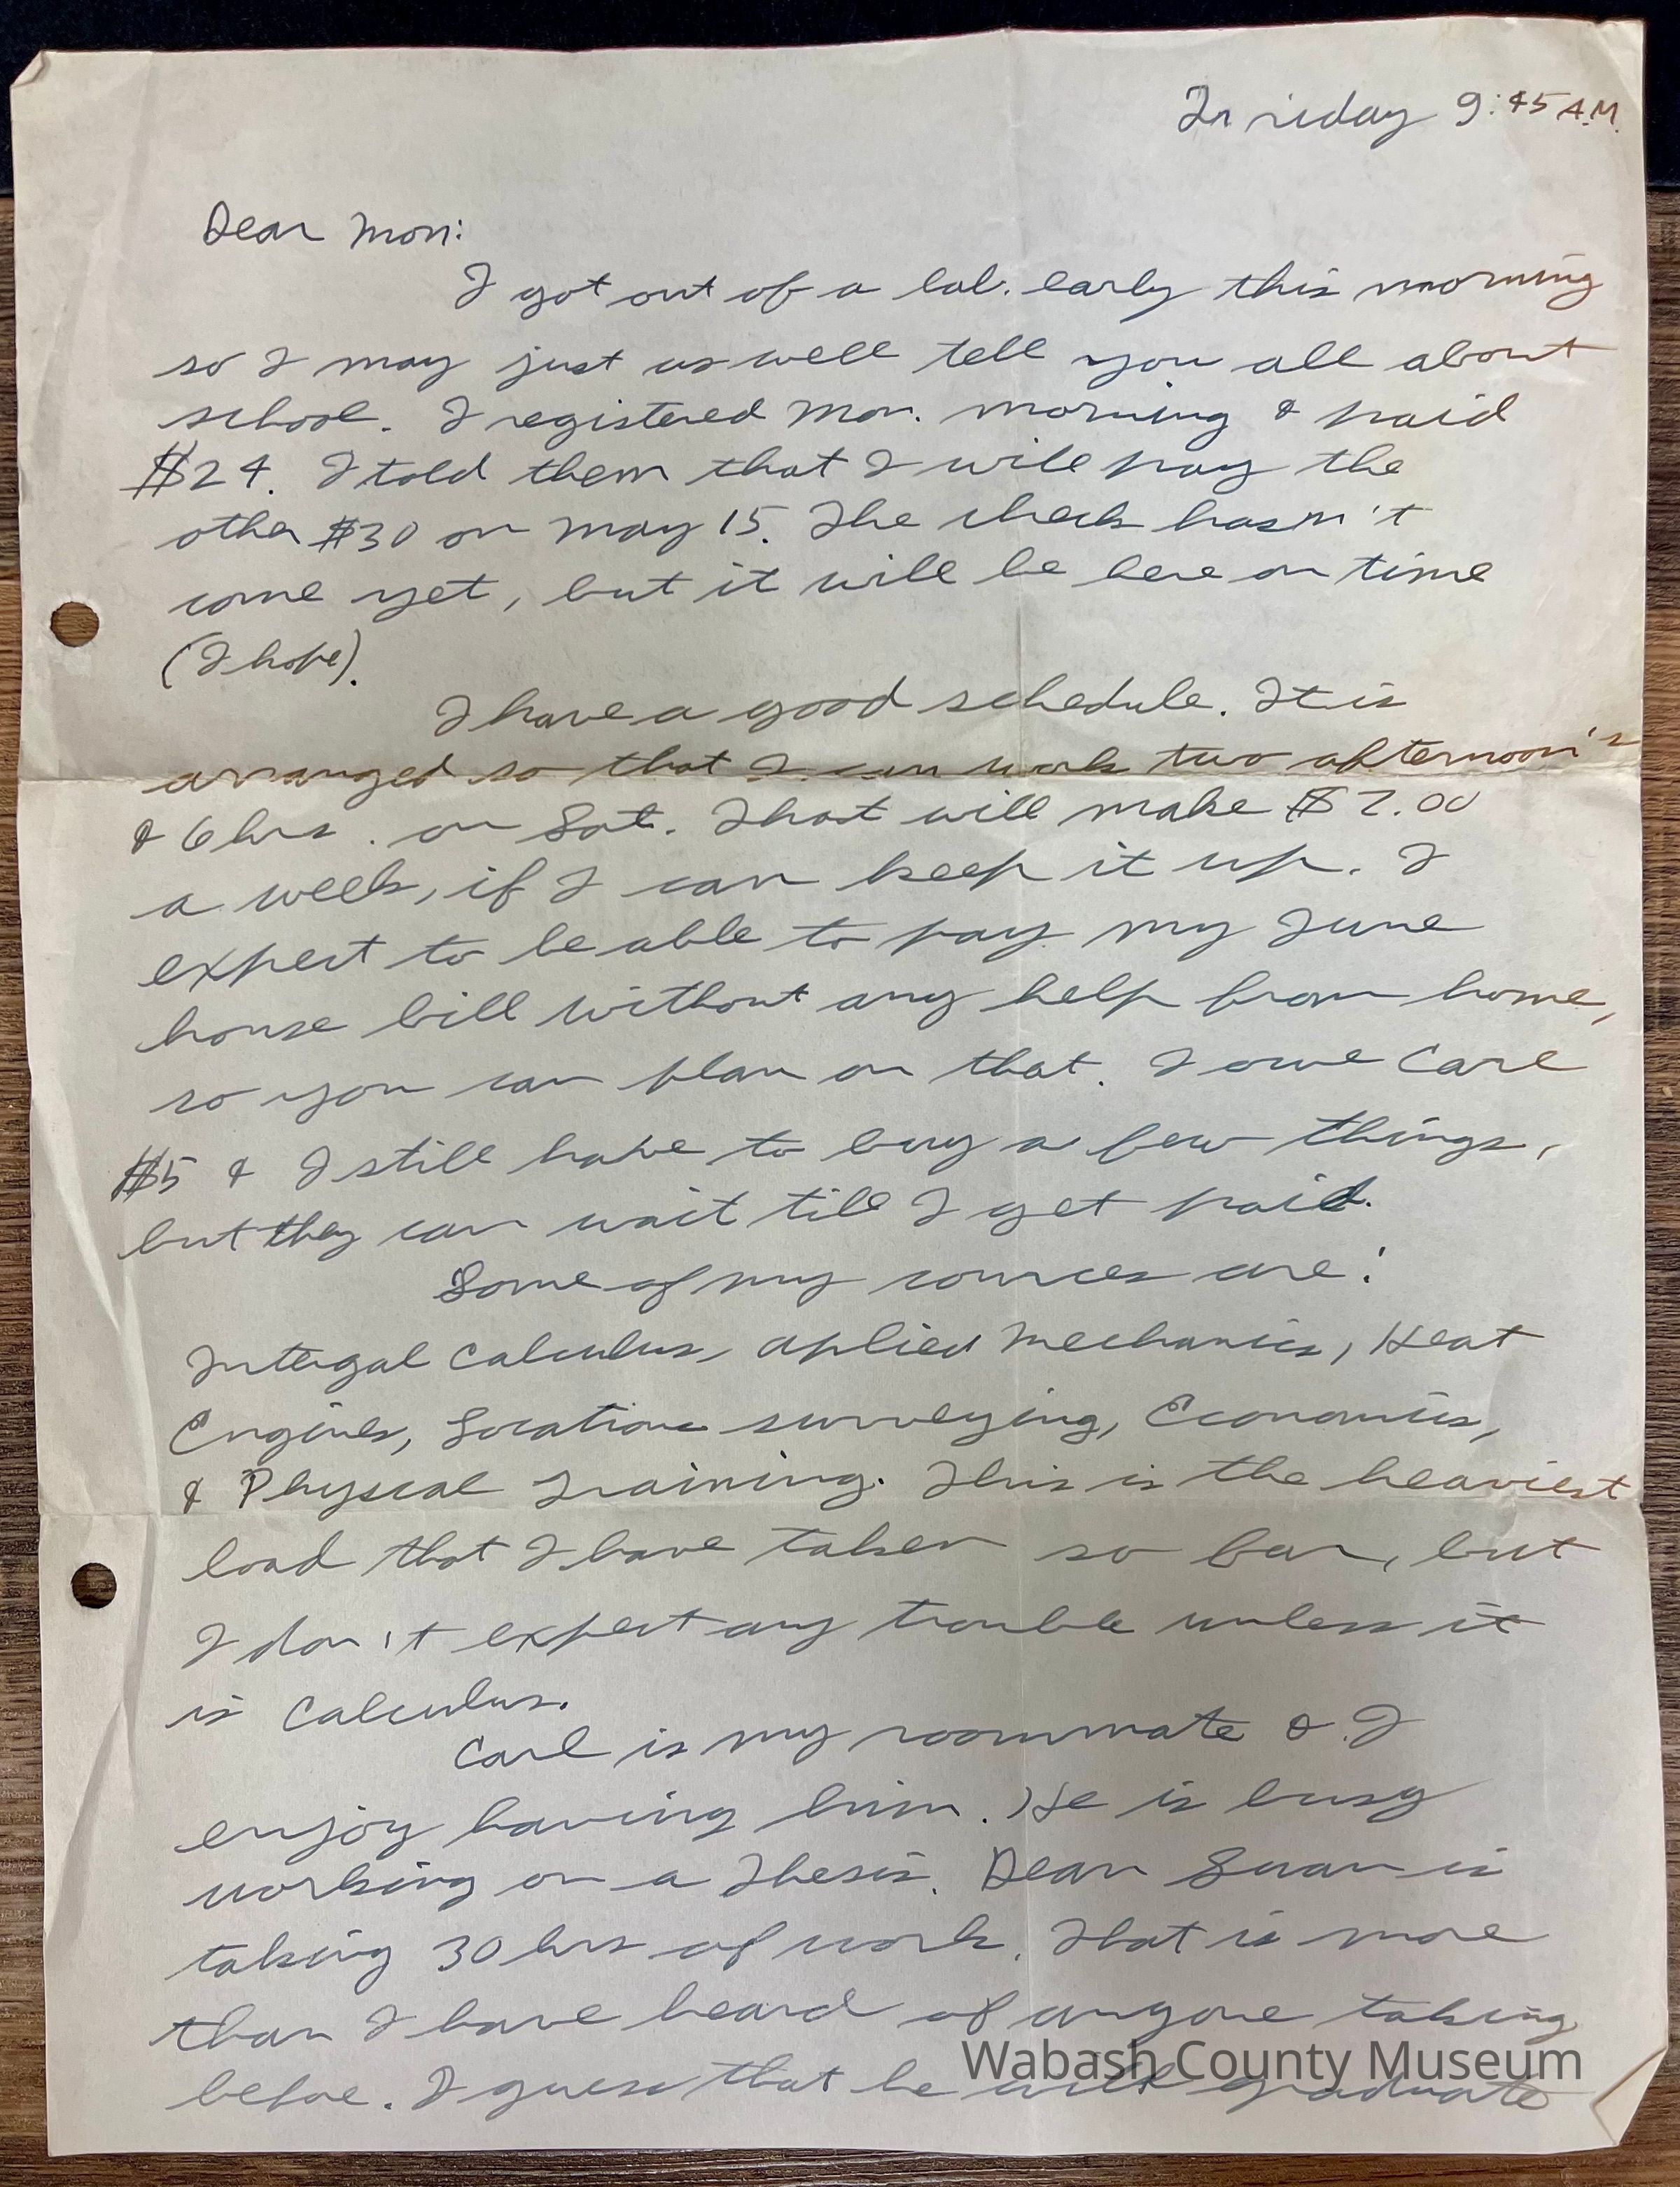 Friday 9:45 A.M.
Dear Mom:
I got out of a lab. early this morning
so I may just as well tell you all about
school. I registered Mon. morning & paid
$24. I told them that I will pay the
other $30 on May 15. The check hasn't
come yet, but it will be here on time
(I hope).
I have a good schedule. It is
arranged so that I can work two afternoon's
& 6 hrs. on Sat. That will make $7.00
a week, if I can keep it up. I
expect to be able to pay my June
house bill without any help from home,
so you can plan on that. I owe Carl
$5 & I still have to buy a few things,
but they can wait till I get paid.
Some of my cources are:
Intergal Calculus, aplied Mechanics, Heat
Engines, Location surveying, Economics,
& Physical Training. This is the heaviest
load that I have taken so far, but
I don't expect any trouble unless it
is Calculus.
Carl is my roommate & I
enjoy having him. He is busy
working on a Thesis. Dean Swan is
taking 30 hrs of work. That is more
than I have heard of anyone taking
before. I guess that he will graduate
Wabash County Museum